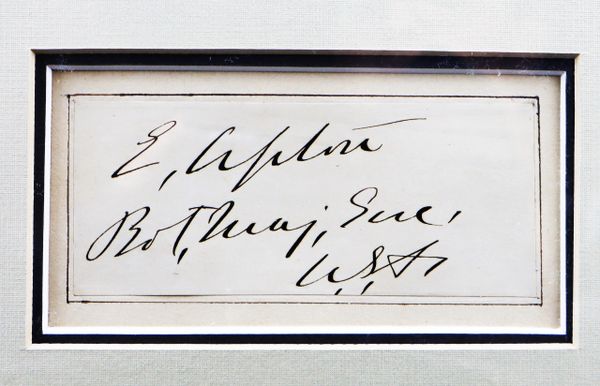 E, Upton
Bvt, Maj, Gen,
U,S,A,